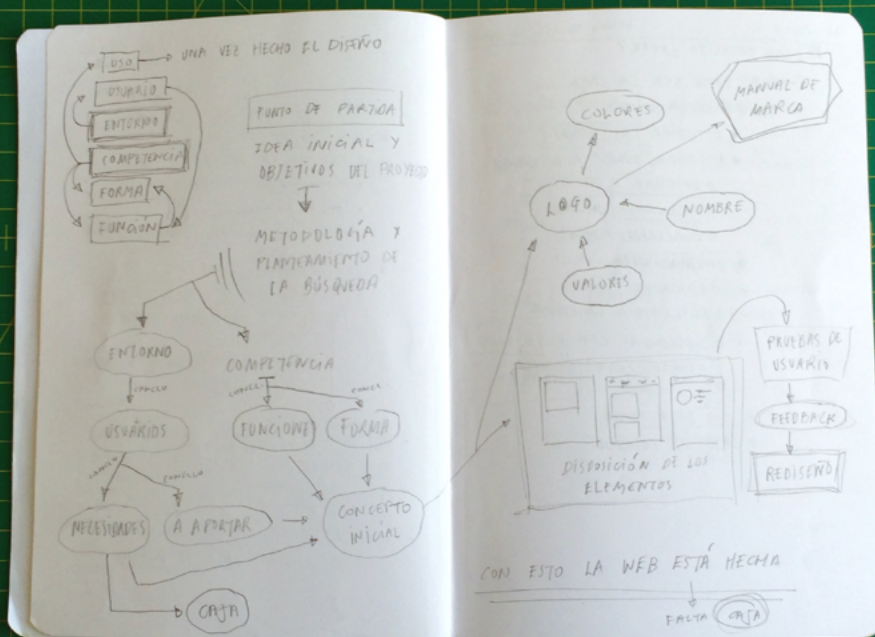 USO
UNA VEZ HECHO EL DISEÑO
USUARIO
ENTORNO
COMPETENCIA
FORMA
FUNCIÓN
PUNTO DE PARTIDA
IDEA INICIAL Y
OBJETIVOS DEL PROYECTO
METODOLOGÍA Y
PLANTEAMIENTO DE
LA BÚSQUEDA
ENTORNO
USUARIOS
NECESIDADES
A APORTAR
CAJA
COMPETENCIA
FUNCIONE
FORMA
CONCEPTO
INICIAL
COLORES
MANUAL DE
MARCA
LOGO
NOMBRE
VALORES
DISPOSICIÓN DE LOS
ELEMENTOS
PRUEBAS DE
USUARIO
FEEDBACK
REDISEÑO
CON ESTO LA WEB ESTÁ HECHA
FALTA CAJA